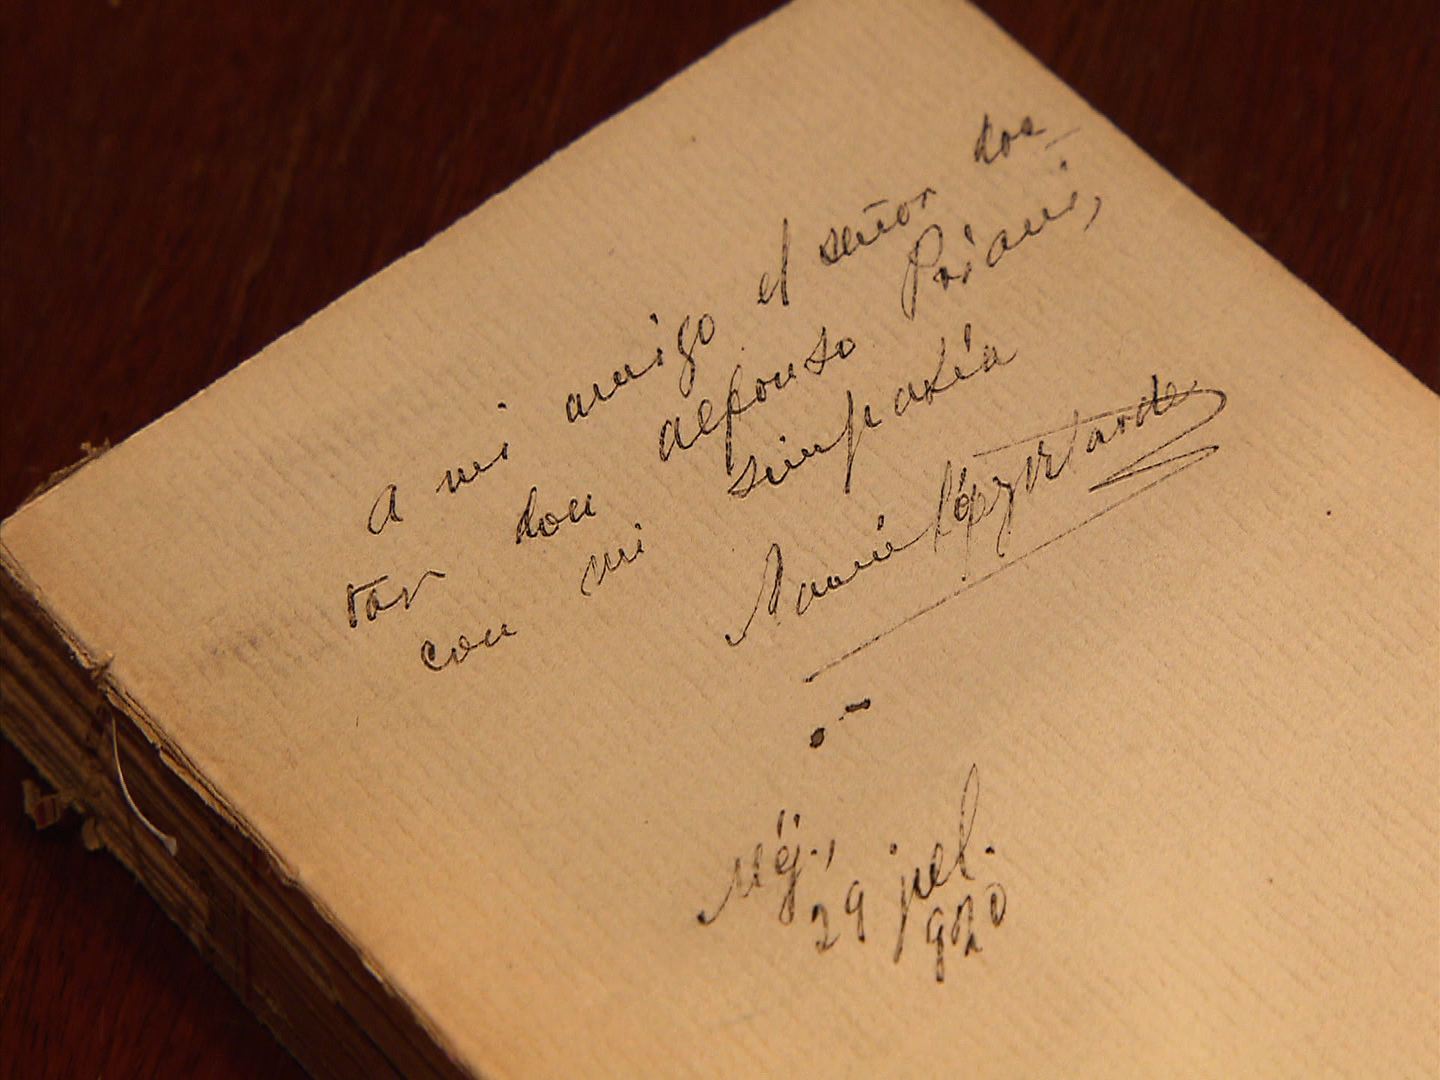 A mi amigo el señor doc-
tor don Alfonso Priani,
con mi simpatía
Ramón López Velarde
Méj.,
29 jul.
920